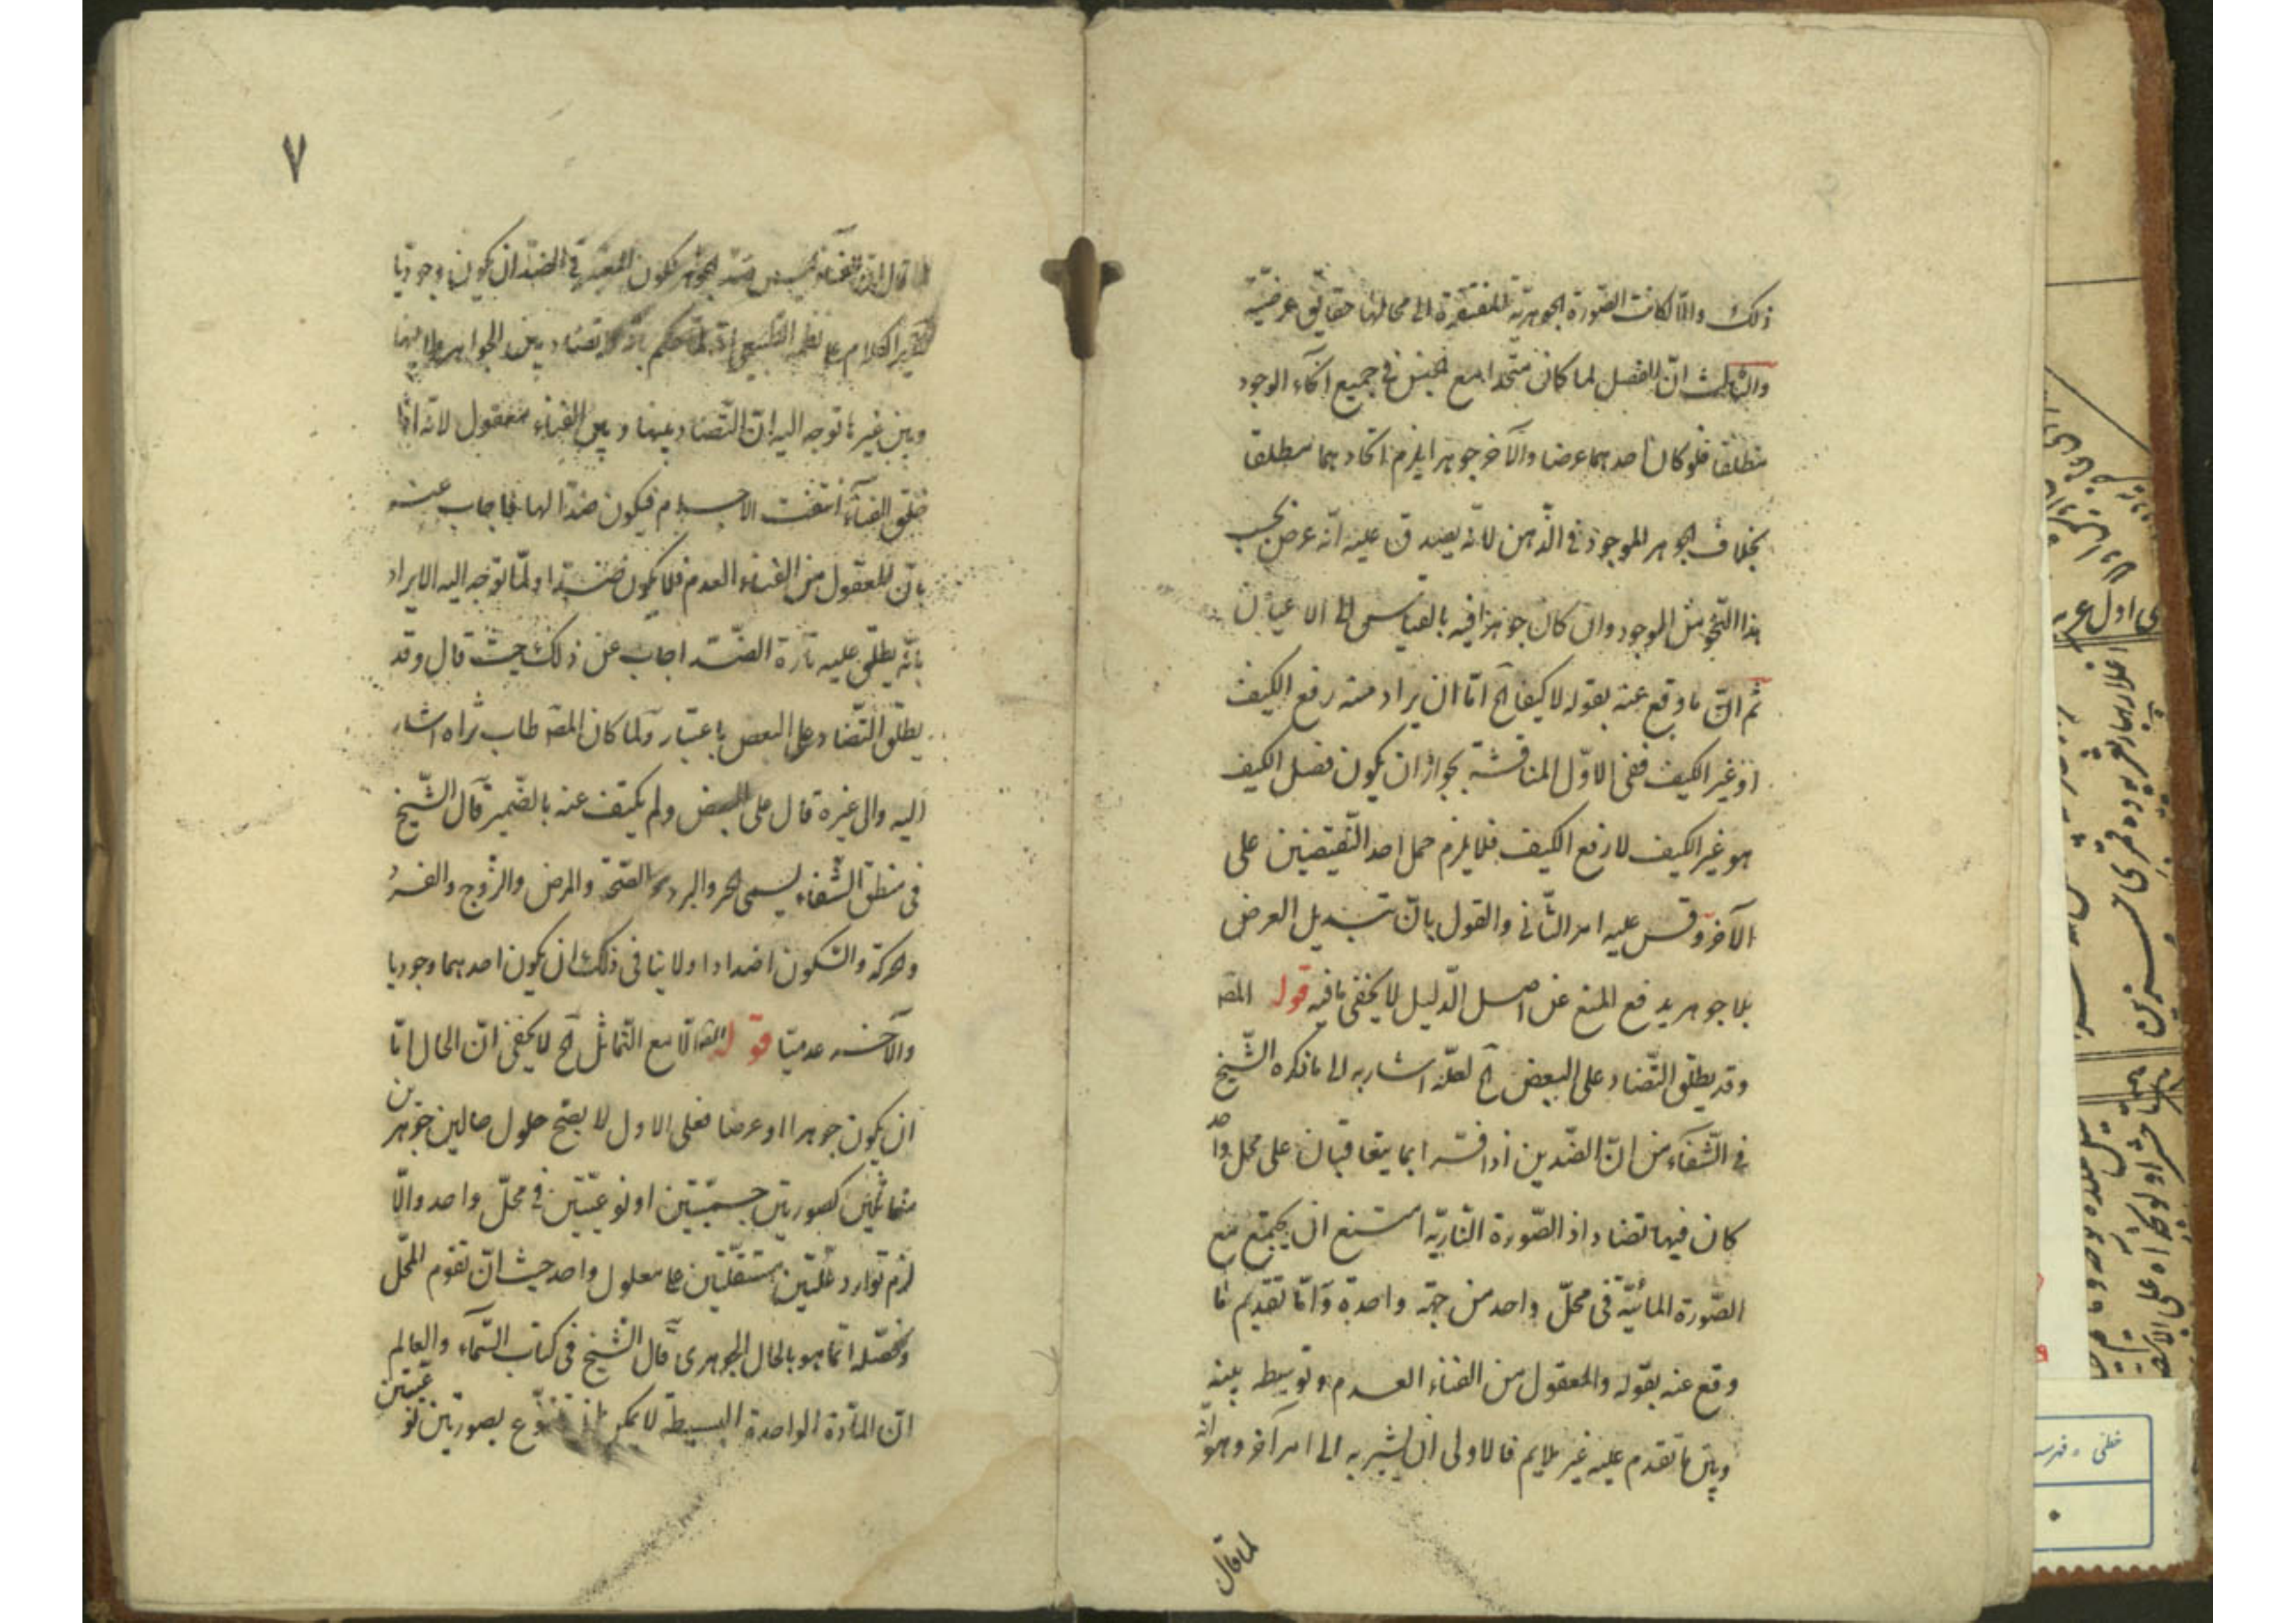 ذلك والّا لكانت الصّورة الجوهريّة المفتقرة الى محالها حقايق عرضيّة
والثالث انّ الفصل لما كان متّحدا مع الجنس في جميع انحاء الوجود
مطلقا فلو كان احدهما عرضا والآخر جوهرا يلزم اتحادهما مطلقا
بخلاف الجوهر الموجود في الذّهن لانّه يصدق عليه انّه عرض بحسب
هذا النّحو من الوجود وان كان جوهرا فيه بالقياس الى الاعيان
ثم انّ ما وقع عنه بقوله لا كيفا آه امّا ان يراد منه رفع الكيف
او غير الكيف ففي الاوّل المناقشة بجواز ان يكون فصل الكيف
هو غير الكيف لا رفع الكيف فلا يلزم حمل احد النّقيضين على
الآخر وقس عليه امر الثّاني والقول بانّ تبديل العرض
بلا جوهر يدفع المنع عن اصل الدّليل لا يخفى ما فيه قوله المصـ
وقد يطلق التّضاد على البعض آه لعلّه اشار به الى ما ذكره الشّيخ
في الشّفاء من انّ الضّدين اذا فسّرا بما يتعاقبان على محل واحد
كان فيها تضاد اذ الصّورة النّاريّة امتنع ان يجتمع مع
الصّورة المائيّة في محلّ واحد من جهة واحدة وامّا تقديم ما
وقع عنه بقوله والمعقول من الفناء العدم وتوسيطه بينه
وبين ما تقدم عليه غير ملايم فالاولى ان يشير به الى امر آخر وهو انّه
لما قال
٧
لما قال انّ الفناء ليس ضد الجوهر لكون المعتبر في الضّد ان يكون وجوديا
الكلام على نظم الطّبيعي انّه لمّا حكم بانّه لا تضاد بين الجواهر ولا بينها
وبين غيرها توجه اليه انّ التّضاد بينها وبين الفناء معقول لانّه اذا
خلق الفناء انتفت الاجسام فيكون ضدّا لها فاجاب عنه
بانّ المعقول من الفناء العدم فلا يكون ضدّا ولمّا توجه اليه الايراد
بانّه يطلق عليه تارة الضّد اجاب عن ذلك حيث قال وقد
يطلق التّضاد على البعض باعتبار ولما كان المصـ طاب ثراه اشار
اليه والى غيره قال على البعض ولم يكتف عنه بالضّمير قال الشّيخ
في منطق الشّفاء يسمى الحر والبرد والصّحة والمرض والزّوج والفرد
والحركة والسّكون اضدادا ولا ينافي ذلك ان يكون احدهما وجوديا
والآخر عدميّا قوله المصـ الّا مع التّماثل آه لا يخفى انّ الحال امّا
ان يكون جوهرا او عرضا فعلى الاول لا يصح حلول حالين جوهرين
متماثلين كصورتين جسميّتين او نوعيّتين في محلّ واحد والّا
لزم توارد علّتين مستقلّتين على معلول واحد حيث انّ تقوم المحلّ
وتحصّله انّما هو بالحال الجوهري قال الشّيخ في كتاب السّماء والعالم
انّ المادّة الواحدة البسيطة لا يمكن ان تتنوّع بصورتين نوعيّتين